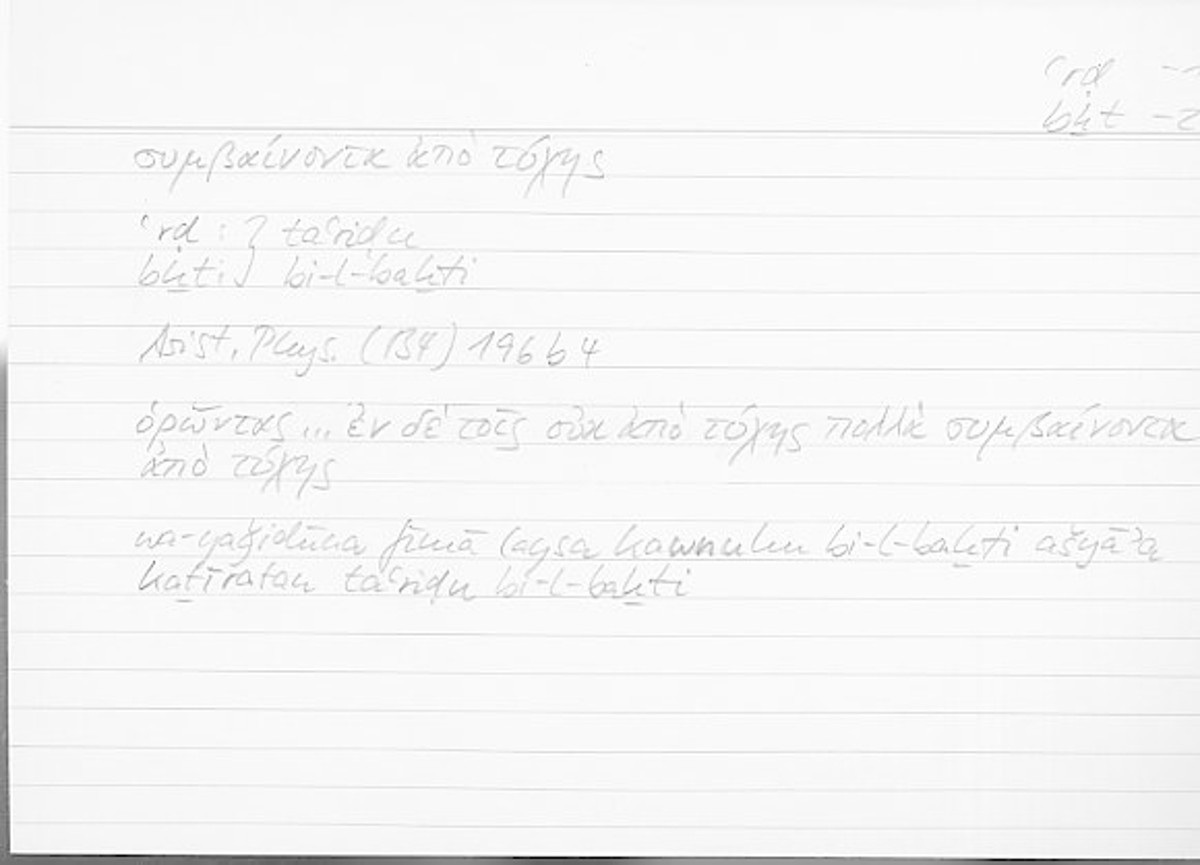 ʿrḍ -1
bḫt -2
συμβαίνοντα ἀπὸ τύχης
ʿrḍ : } taʿriḍu
bḫt : } bi-l-baḫti
Arist. Phys. (B4) 196 b 4
ὁρῶντας ... ἐν δὲ τοῖς οὐκ ἀπὸ τύχης πολλὰ συμβαίνοντα
ἀπὸ τύχης
wa-yaǧidūna fīmā laysa kawnuhu bi-l-baḫti ašyāʾa
kaṯīratan taʿriḍu bi-l-baḫti